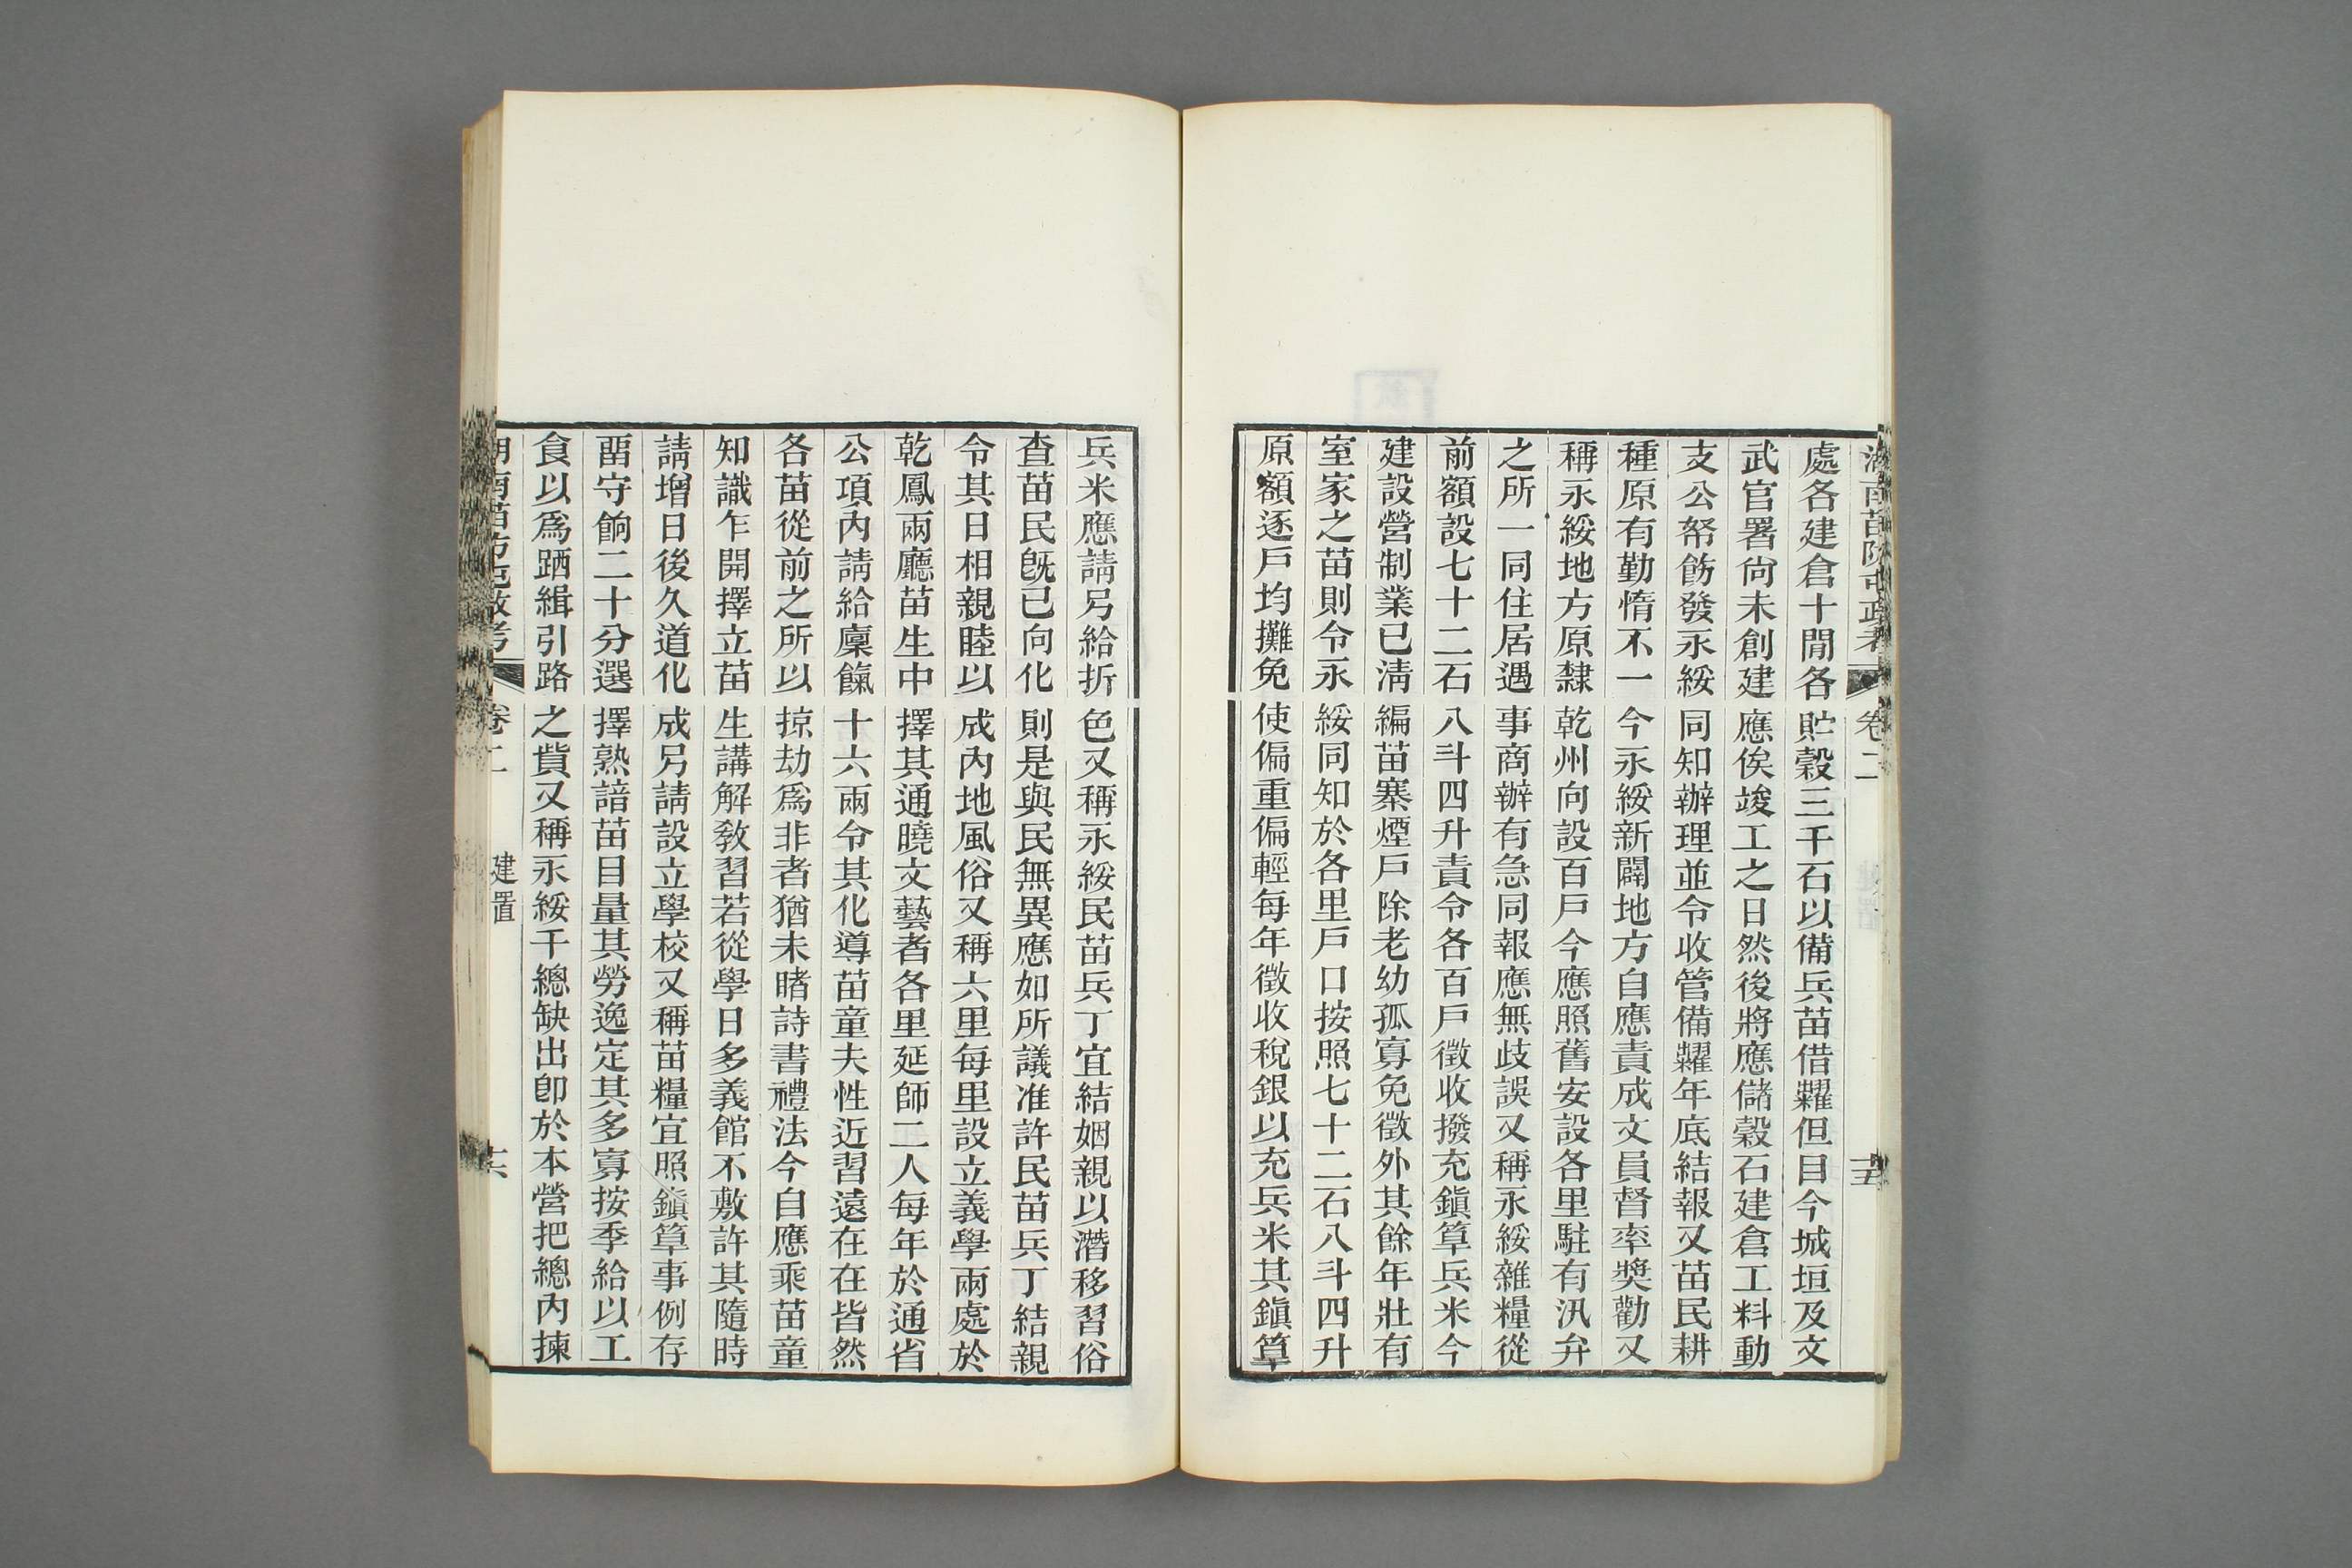 湖南苗防屯政考 卷二 十五
處各建倉十間各貯穀三千石以備兵苗借糶但目今城垣及文
武官署尙未創建應俟竣工之日然後將應儲穀石建倉工料動
支公帑飭發永綏同知辦理並令收管備糶年底結報又苗民耕
種原有勤惰不一今永綏新闢地方自應責成文員督率奬勸又
稱永綏地方原隸乾州向設百戶今應照舊安設各里駐有汛弁
之所一同住居遇事商辦有急同報應無歧誤又稱永綏雜糧從
前額設七十二石八斗四升責令各百戶徵收撥充鎭筸兵米今
建設營制業已淸編苗寨煙戶除老幼孤寡免徵外其餘年壯有
室家之苗則令永綏同知於各里戶口按照七十二石八斗四升
原額逐戶均攤免使偏重偏輕每年徵收稅銀以充兵米其鎭筸
兵米應請另給折色又稱永綏民苗兵丁宜結姻親以潛移習俗
查苗民旣已向化則是與民無異應如所議准許民苗兵丁結親
令其日相親睦以成內地風俗又稱六里每里設立義學兩處於
乾鳳兩廳苗生中擇其通曉文藝者各里延師二人每年於通省
公項內請給廩餼十六兩令其化導苗童夫性近習遠在在皆然
各苗從前之所以掠劫爲非者猶未睹詩書禮法今自應乘苗童
知識乍開擇立苗生講解敎習若從學日多義館不敷許其隨時
請增日後久道化成另請設立學校又稱苗糧宜照鎭筸事例存
畱守餉二十分選擇熟諳苗目量其勞逸定其多寡按季給以工
食以爲跴緝引路之貲又稱永綏千總缺出卽於本營把總內揀
湖南苗防屯政考 卷二 建置 十六